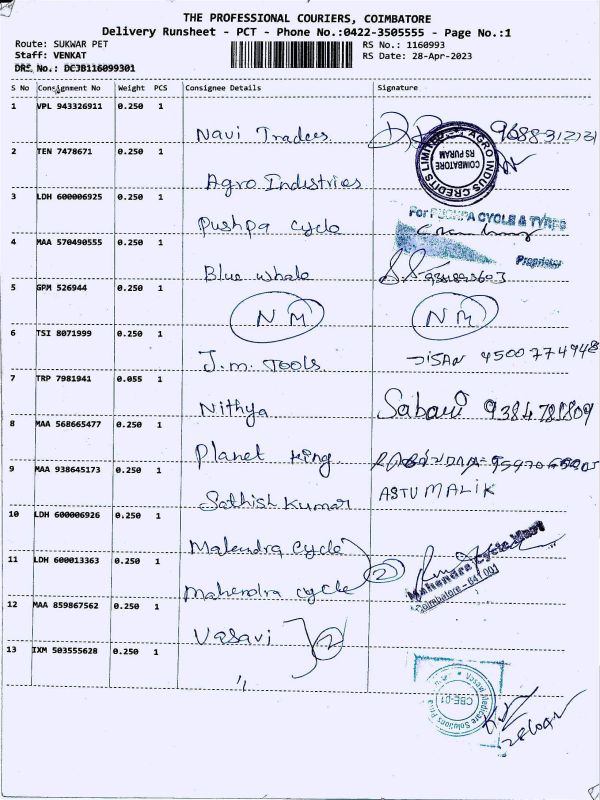 THE PROFESSIONAL COURIERS, COIMBATORE
Delivery Runsheet - PCT - Phone No.:0422-3505555 - Page No.:1
Route: SUKWAR PET
Staff: VENKAT
DRS No.: DCJB116099301
RS No.: 1160993
RS Date: 28-Apr-2023
S No Consignment No Weight PCS Consignee Details Signature
1 VPL 943326911 0.250 1
Navi Traders 9688312731
2 TEN 7478671 0.250 1
Agro Industries
AGRO INDUS CREDITS LIMITED
RS PURAM
COIMBATORE
3 LDH 600006925 0.250 1
Pushpa cycle
For PUSHPA CYCLE & TYRES
Proprietor
4 MAA 570490555 0.250 1
Blue whale
5 GPM 526944 0.250 1
NM NM
6 TSI 8071999 0.250 1
J.m. TOOLS JISAN
7 TRP 7981941 0.055 1
Nithya 9384781809
8 MAA 568665477 0.250 1
Planet King
9 MAA 938645173 0.250 1
Sathish Kumar ASTU MALIK
10 LDH 600006926 0.250 1
Mahendra cycle
11 LDH 600013363 0.250 1
Mahendra cycle 2
Mahendra Cycle Mart
Coimbatore - 641 001
12 MAA 859867562 0.250 1
Vasavi 2
13 IXM 503555628 0.250 1
"
Vasavi Medicare Solutions
CBE-01